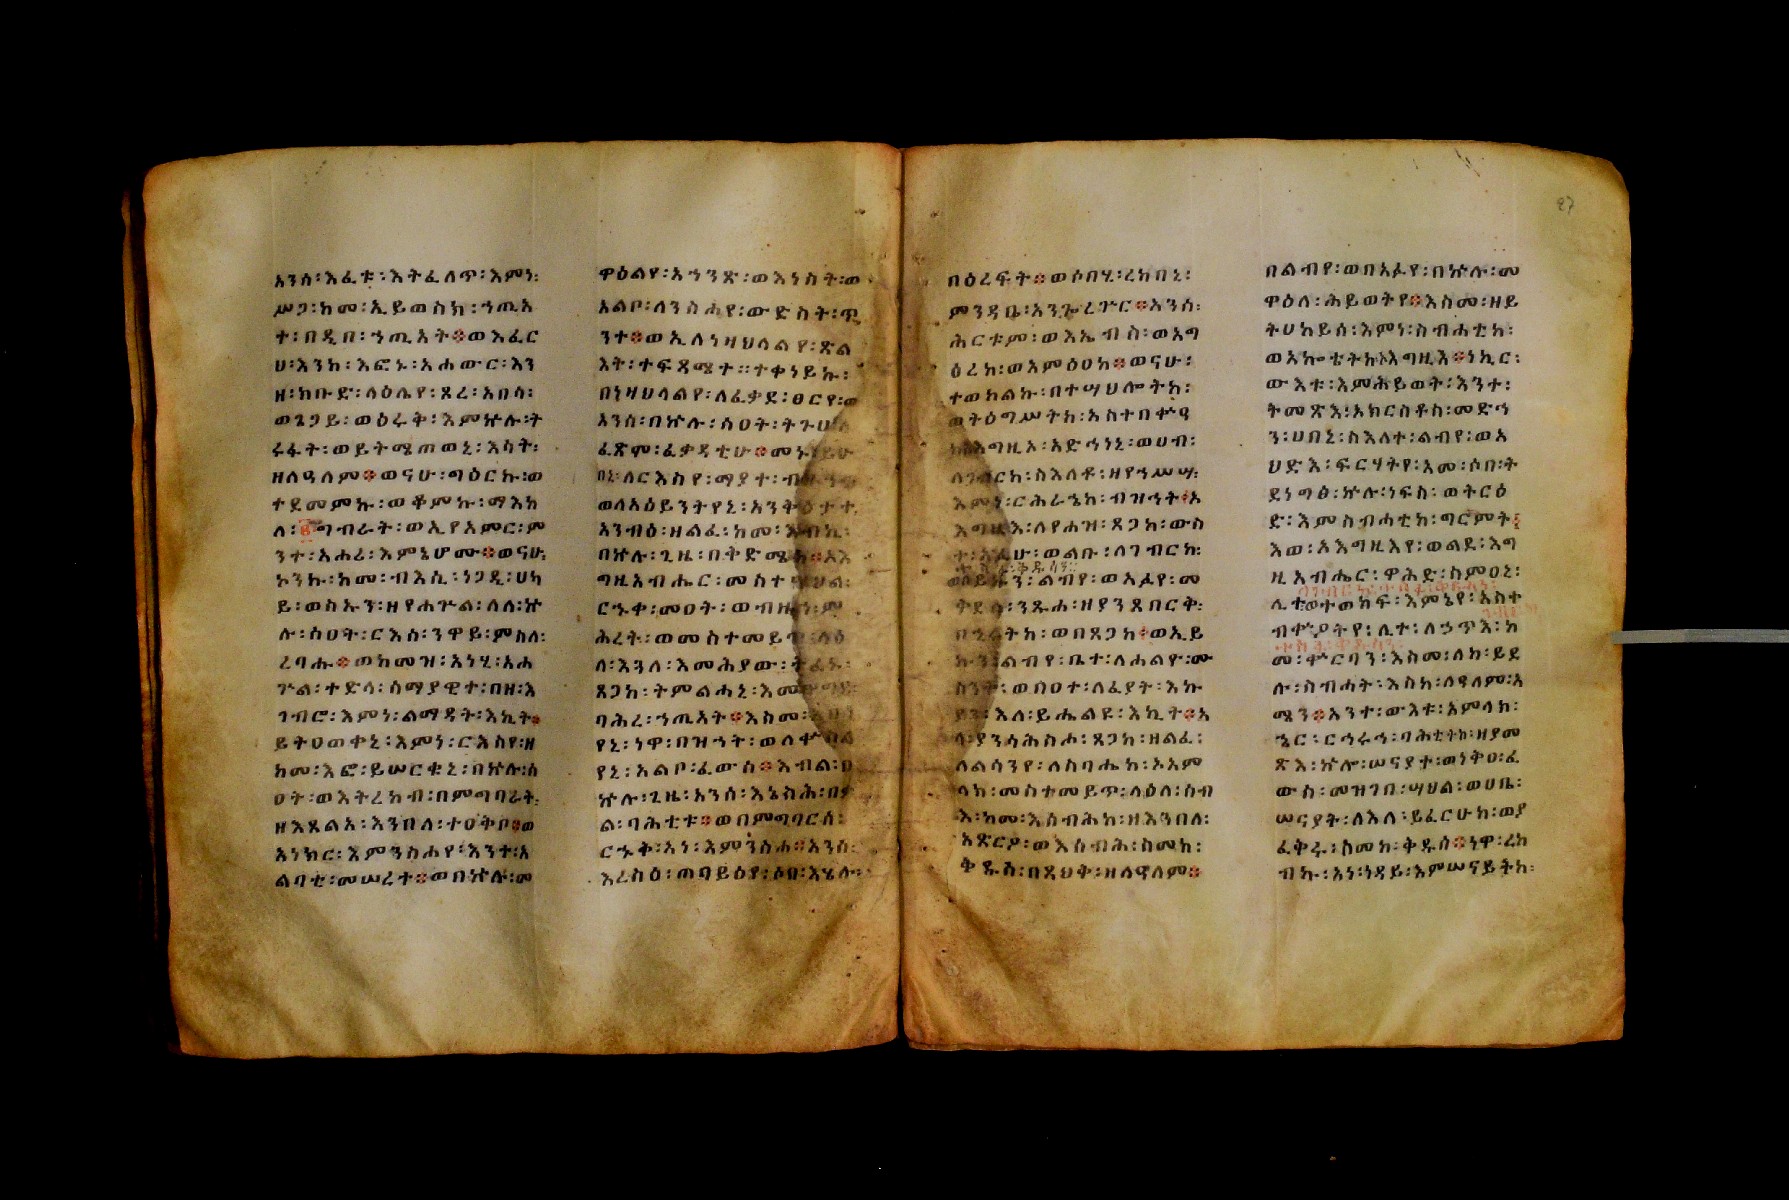 አንሰ፡እፈቱ፡እትፈለጥ፡እምነ፡
ሥጋ፡ከመ፡ኢይወስክ፡ኀጢአ
ት፡በዲበ፡ኀጢአት፨ወእፈር
ሀ፡እንከ፡እፎኑ፡አሐውር፡እን
ዘ፡ክቡድ፡ላዕሌየ፡ጾረ፡አበሳ፡
ወጌጋይ፡ወዕሩቅ፡እምኵሉ፡ት
ሩፋት፡ወይትሜጠወኒ፡እሳት፡
ዘለዓለም፨ወናሁ፡ግዕርኩ፡ወ
ተደመምኩ፡ወቆምኩ፡ማእከ
ለ፡፪ግብራት፡ወኢየአምር፡ም
ንተ፡አሐሪ፡እምኔሆሙ፨ወናሁ፡
ኮንኩ፡ከመ፡ብእሲ፡ነጋዲ፡ሀካ
ይ፡ወስኡን፡ዘየሐጕል፡ለለ፡ኵ
ሉ፡ሰዐት፡ርእሰ፡ንዋይ፡ምስለ፡
ረባሑ፨ወከመዝ፡አነሂ፡አሐ
ጕል፡ተድላ፡ሰማያዊተ፡በዘ፡እ
ገብሮ፡እምነ፡ልማዳት፡እኪት፨
ይትዐወቀኒ፡እምነ፡ርእስየ፡ዘ
ከመ፡እፎ፡ይሠርቁኒ፡በኵሉ፡ሰ
ዐት፡ወእትረከብ፡በምግባራት፡
ዘእጸልእ፡እንበለ፡ተዐቅቦ፨ወ
አነክር፡እምንስሐየ፡እንተ፡አ
ልባቲ፡መሠረተ፨ወበኵሉ፡መ
ዋዕልየ፡አኀንጽ፡ወእነስት፡ወ
አልቦ፡ለንስሐየ፡ውድስት፡ጥ
ንተ፨ወኢለነዛህላልየ፡ጽል
እት፡ተፍጻሜተ፡፡ተቀነይኩ፡
በነዛህላልየ፡ለፈቃደ፡ፀርየ፡ወ
አንሰ፡በኵሉ፡ሰዐት፡ትጉህ
ፈጽሞ፡ፈቃዳቲሁ፨መኑ፡ይሁ
በኒ፡ለርእስየ፡ማያተ፡
ወለአዕይንትየኒ፡አንቅዕታተ፡
አንብዕ፡ዘልፈ፡ከመ፡እብኪ፡
በኵሉ፡ጊዜ፡በቅድሜከ፨ኦእ
ግዚአብሔር፡መስተሣህል፡
ርኁቀ፡መዐት፡ወብዙኀ፡ም
ሕረት፡ወመስተመይጥ፡ላዕ
ለ፡እጓለ፡እመሕያው፡ትፈኑ፡
ጸጋከ፡ትምልሓኒ፡እመ
ባሕረ፡ኀጢአት፨እስመ፡
የኒ፡ነዋ፡በዝኀት፡ወለቍስል
የኒ፡አልቦ፡ፈውስ፨እብል፡በ
ኵሉ፡ጊዜ፡አንሰ፡እኔስሕ፡በቃ
ል፡ባሕቲቱ፨ወበምግባርሰ፡
ርኁቅ፡አነ፡እምንስሐ፨አንሰ፡
እረስዕ፡ጠባይዕየ፡ዕበ፡እሄሉ፡
በዕረፍት፨ወሶበሂ፡ረከበኒ፡
ምንዳቤ፡አንጐረጕር፨አንሰ፡
ሕርቱም፡ወእኤብስ፡ወእግ
ዕረከ፡ወእምዕዐከ፨ወናሁ፡
ተወከልኩ፡በተሣህሎትከ፡
ወትዕግሥትከ፡አስተበቍዓ
ከ፡እግዚኦ፡አድኅነኒ፡ወሀብ፡
ለገብርከ፡ስእለቶ፡ዘየኀሥሥ፡
እምነ፡ርሕራኄከ፡ብዝኅት፨ኦ
እግዚእ፡ለየሐዝ፡ጸጋከ፡ውስ
ተ፡አፉሁ፡ወልቡ፡ለገብርከ፡
ወይኩን፡ልብየ፡ወአፉየ፡መ
ቅደሰ፡ንጹሐ፡ዘያንጸበርቅ፡
በኂሩትከ፡ወበጸጋከ፨ወኢይ
ኩን፡ልብየ፡ቤተ፡ለሐልዮ፡ሙ
ስንት፡ወበዐተ፡ለፈያት፡እኩ
ያን፡እለ፡ይሔልዩ፡እኪት፨አ
ላ፡ያንሳሕስሖ፡ጸጋከ፡ዘልፈ፡
ለልሳንየ፡ለስባሔከ፡ኦአም
ላክ፡መስተመይጥ፡ላዕለ፡ስብ
እ፡ከመ፡እሰብሕከ፡ዘእንበለ፡
አጽርዖ፡ወእሰብሕ፡ስመከ፡
ቅዱስ፡በጻህቅ፡ዘለዓለም፨
በልብየ፡ወበአፉየ፡በኵሉ፡መ
ዋዕለ፡ሕይወትየ፨እስመ፡ዘይ
ትሀከይሰ፡እምነ፡ስብሐቲከ፡
ወአኰቴትከ፡ኦእግዚእ፨ነኪር፡
ውእቱ፡እምሕይወት፡እንተ፡
ትመጽእ፡ኦክርስቶስ፡መድኀ
ን፡ሀበኒ፡ስእለተ፡ልብየ፡ወአ
ህድእ፡ፍርሃትየ፡አመ፡ሶበ፡ት
ደነግፅ፡ኵሉ፡ነፍስ፡ወትርዕ
ድ፡እምስብሐቲከ፡ግሮምት፨
እወ፡ኦእግዚእየ፡ወልደ፡እግ
ዚአብሔር፡ዋሕድ፡ስምዐኒ፡
ሊተወተወከፍ፡እምኔየ፡አስተ
ብቍዖትየ፡ሊተ፡ለኃጥእ፡ከ
መ፡ቍርባን፡እስመ፡ለከ፡ይደ
ሉ፡ስብሓት፡እስከ፡ለዓለም፡አ
ሜን፨አንተ፡ውእቱ፡አምላክ፡
ኄር፡ርኅሩኅ፡ባሕቲትከ፡ዘያመ
ጽእ፡ኵሎ፡ሠናያተ፡ወነቅዐ፡ፈ
ውስ፡መዝገበ፡ሣህል፡ወሀቤ፡
ሠናያት፡ለእለ፡ይፈርሁከ፡ወያ
ፈቅሩ፡ስመከ፡ቅዱሰ፨ነዋ፡ረከ
ብኩ፡አነ፡ነዳይ፡እምሠናይትከ፡